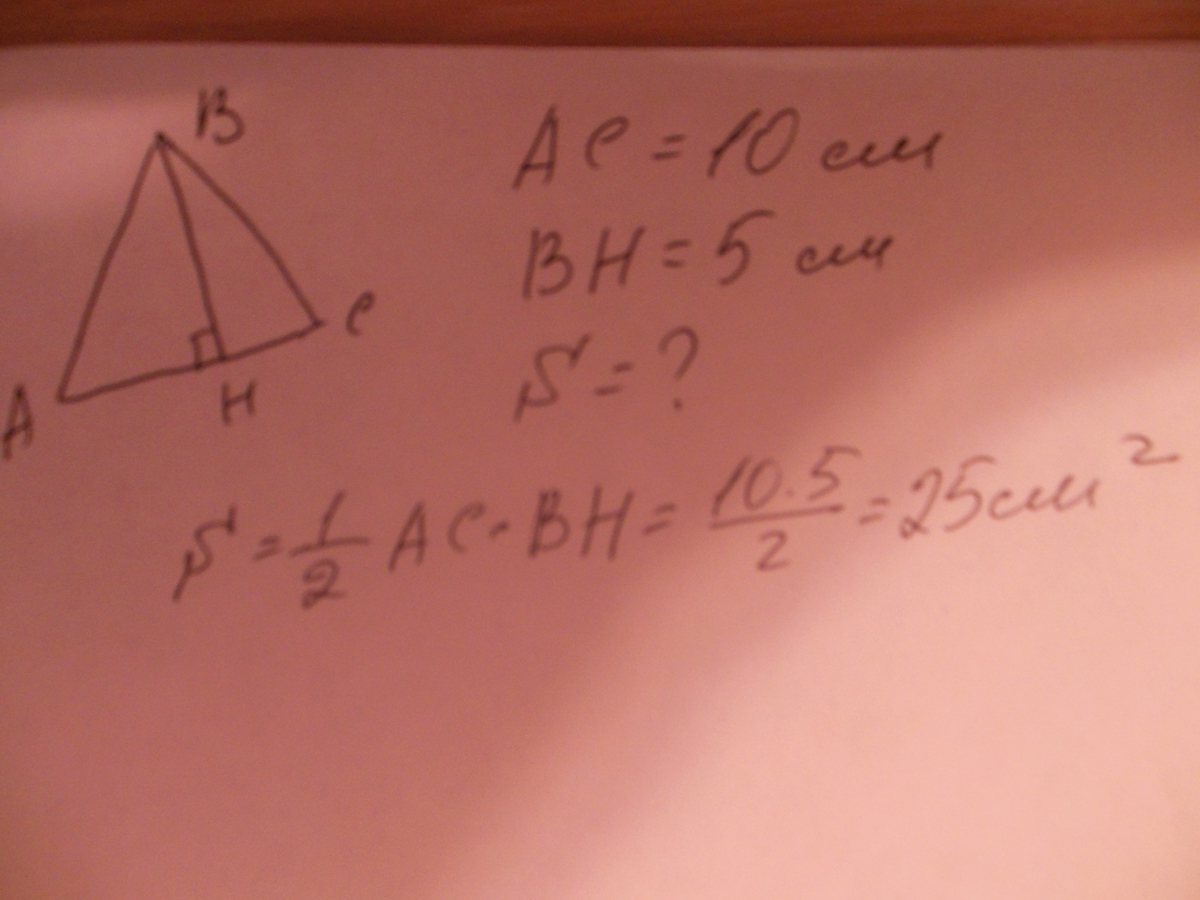 B
AC = 10 см
BH = 5 см
C
S = ?
A
H
S = 1/2 AC · BH = 10·5/2 = 25 см²